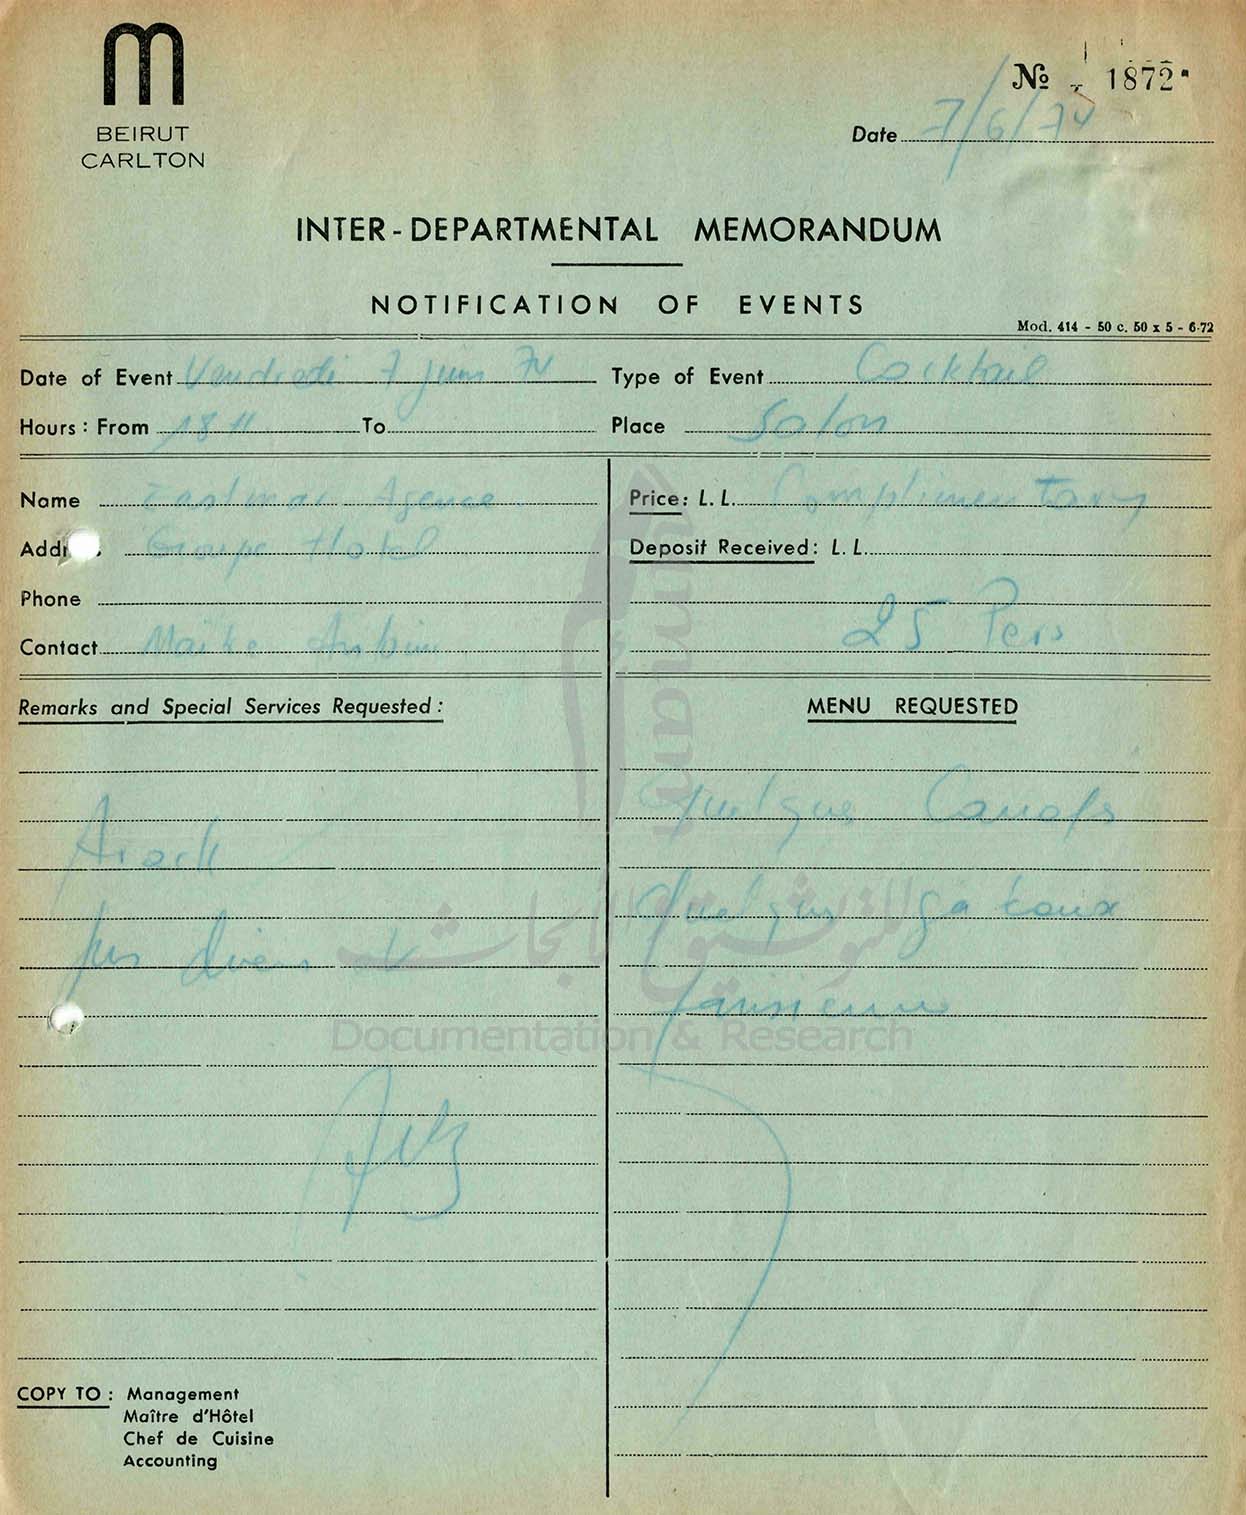 BEIRUT
CARLTON
№ 1872
Date 7/6/74
INTER-DEPARTMENTAL MEMORANDUM
NOTIFICATION OF EVENTS
Mod. 414 - 50 c. 50 x 5 - 6-72
Date of Event Vendredi 7 juin 74 Type of Event Cocktail
Hours: From 18 H To Place Salon
Name Eastmar Agence Price: L.L. Complimentary
Groupe Hotel Deposit Received: L.L.
Phone
Contact 25 Pers
Remarks and Special Services Requested: MENU REQUESTED
Quelques Canapés
Arack
Quelques gateaux
Jus divers
Parisienne
للتوثيق والأبحاث
Umam
Documentation & Research
COPY TO: Management
Maître d'Hôtel
Chef de Cuisine
Accounting